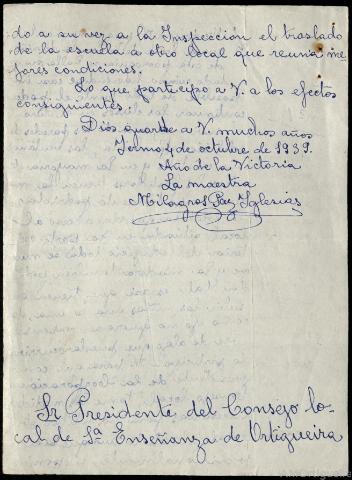 do a su vez a la Inspección el traslado
de la escuela a otro local que reuna me
jores condiciones.
Lo que participo a V. a los efectos
consiguientes.
Dios guarde a V. muchos años
4 de octubre de 1939.
Año de la Victoria
La maestra
Milagros Paz Iglesias
Sr Presidente del Consejo lo-
cal de 1ª Enseñanza de Ortigueira